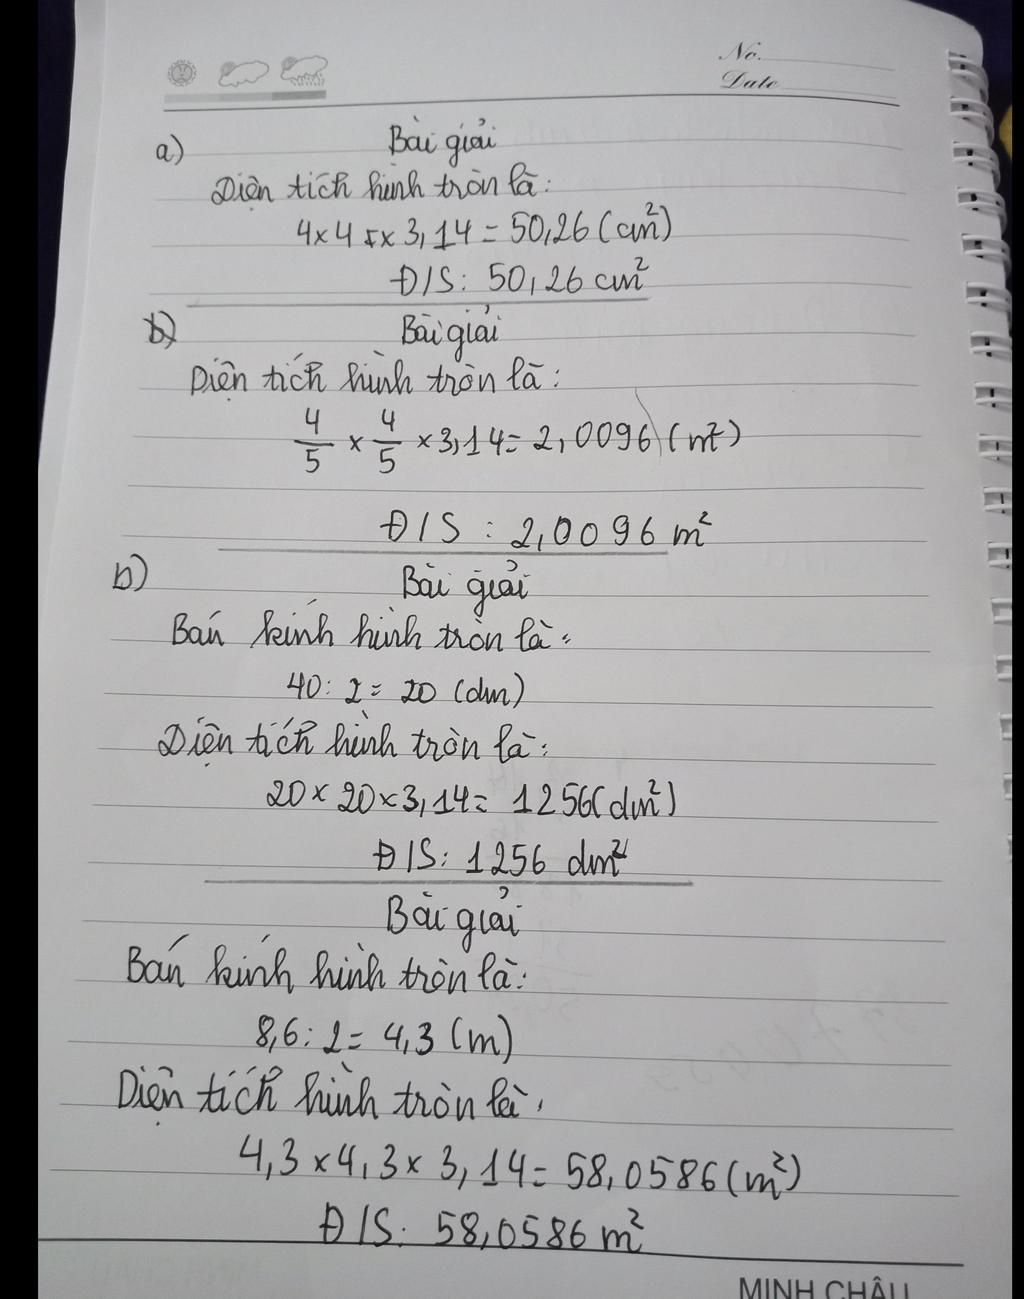 No.
Date
a) Bài giải
Diện tích hình tròn là:
4 x 4 x 3,14 = 50,26 (cm²)
Đ/S: 50,26 cm²
b) Bài giải
Diện tích hình tròn là:
4/5 x 4/5 x 3,14 = 2,0096 (m²)
Đ/S: 2,0096 m²
b) Bài giải
Bán kính hình tròn là:
40 : 2 = 20 (dm)
Diện tích hình tròn là:
20 x 20 x 3,14 = 1256 (dm²)
Đ/S: 1256 dm²
Bài giải
Bán kính hình tròn là:
8,6 : 2 = 4,3 (m)
Diện tích hình tròn là:
4,3 x 4,3 x 3,14 = 58,0586 (m²)
Đ/S: 58,0586 m²
MINH CHÂU